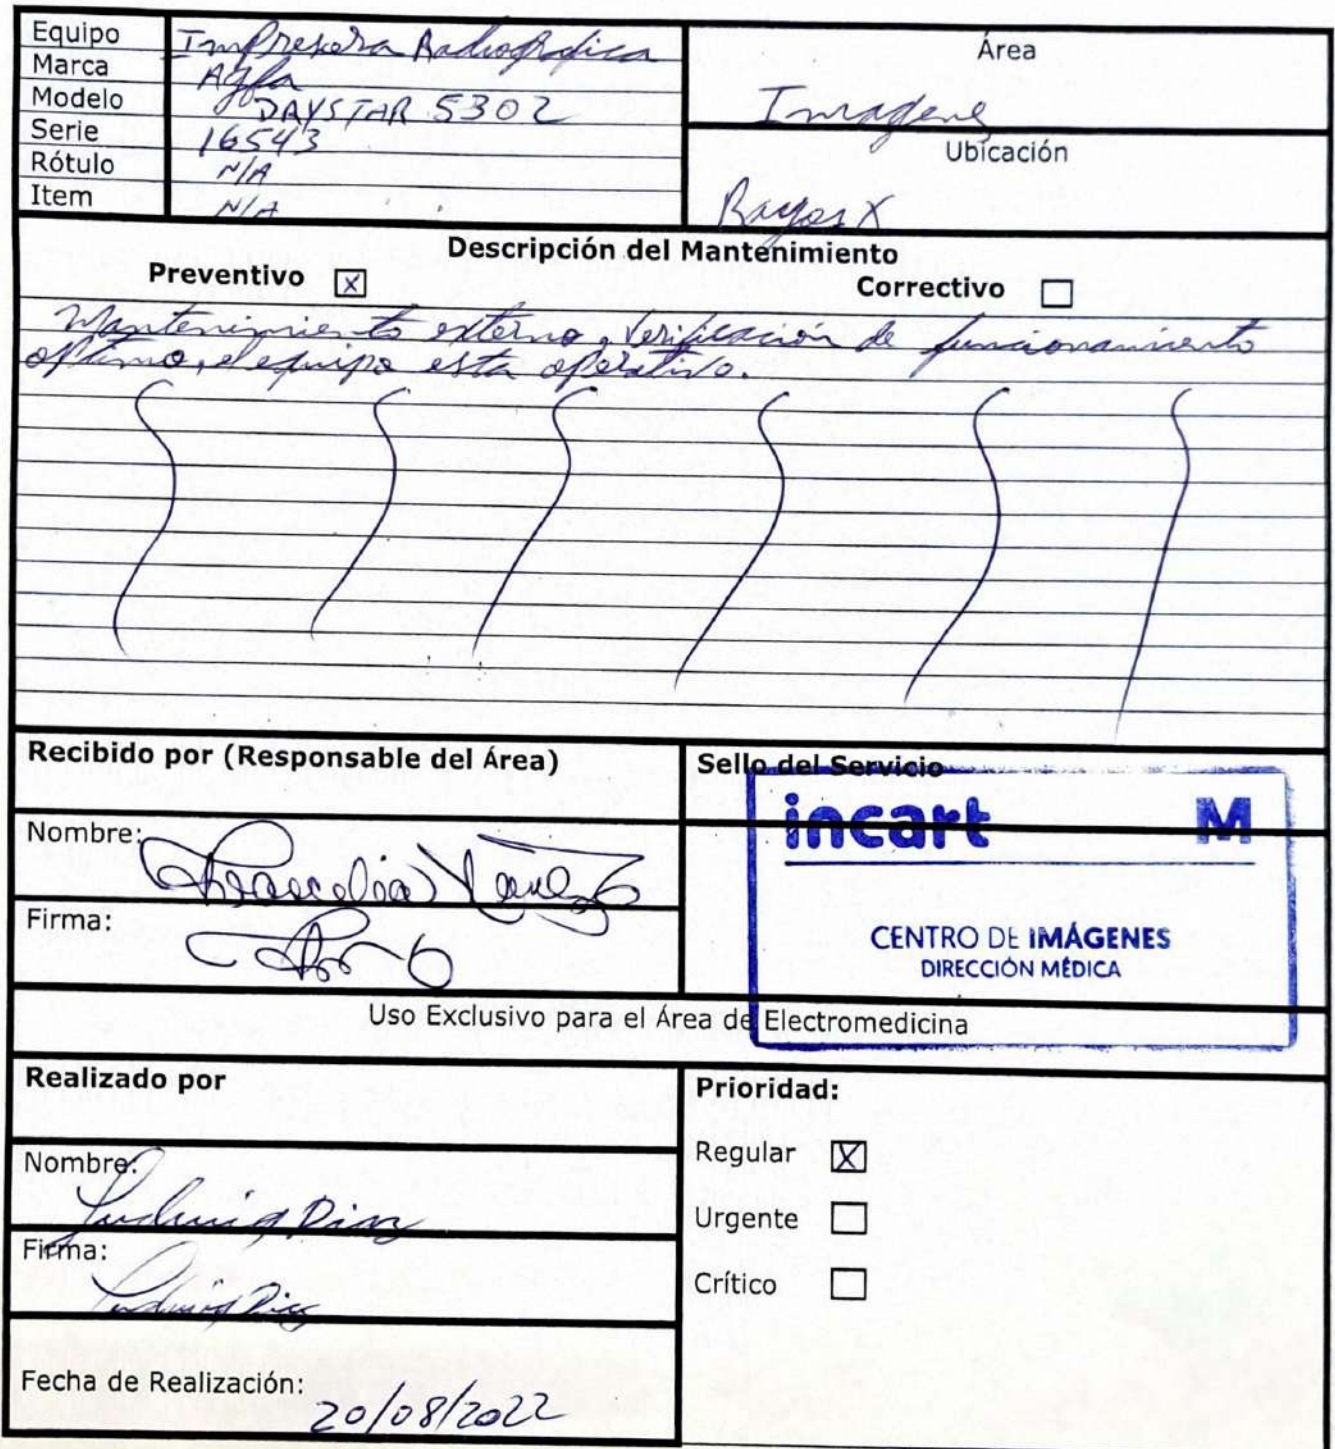 Equipo Impresora Radiografica
Marca Agfa
Modelo DAYSTAR 5302
Serie 16543
Rótulo N/A
Item N/A
Área
Imagene
Ubicación
Rayos X
Descripción del Mantenimiento
Preventivo X Correctivo
Mantenimiento externo, verificación de funcionamiento
optimo, el equipo esta operativo.
Recibido por (Responsable del Área)
Nombre:
Firma:
Sello del Servicio
incart M
CENTRO DE IMÁGENES
DIRECCIÓN MÉDICA
Uso Exclusivo para el Área de Electromedicina
Realizado por
Nombre: Ludwig Diaz
Firma: Ludwig Diaz
Fecha de Realización: 20/08/2022
Prioridad:
Regular X
Urgente
Crítico